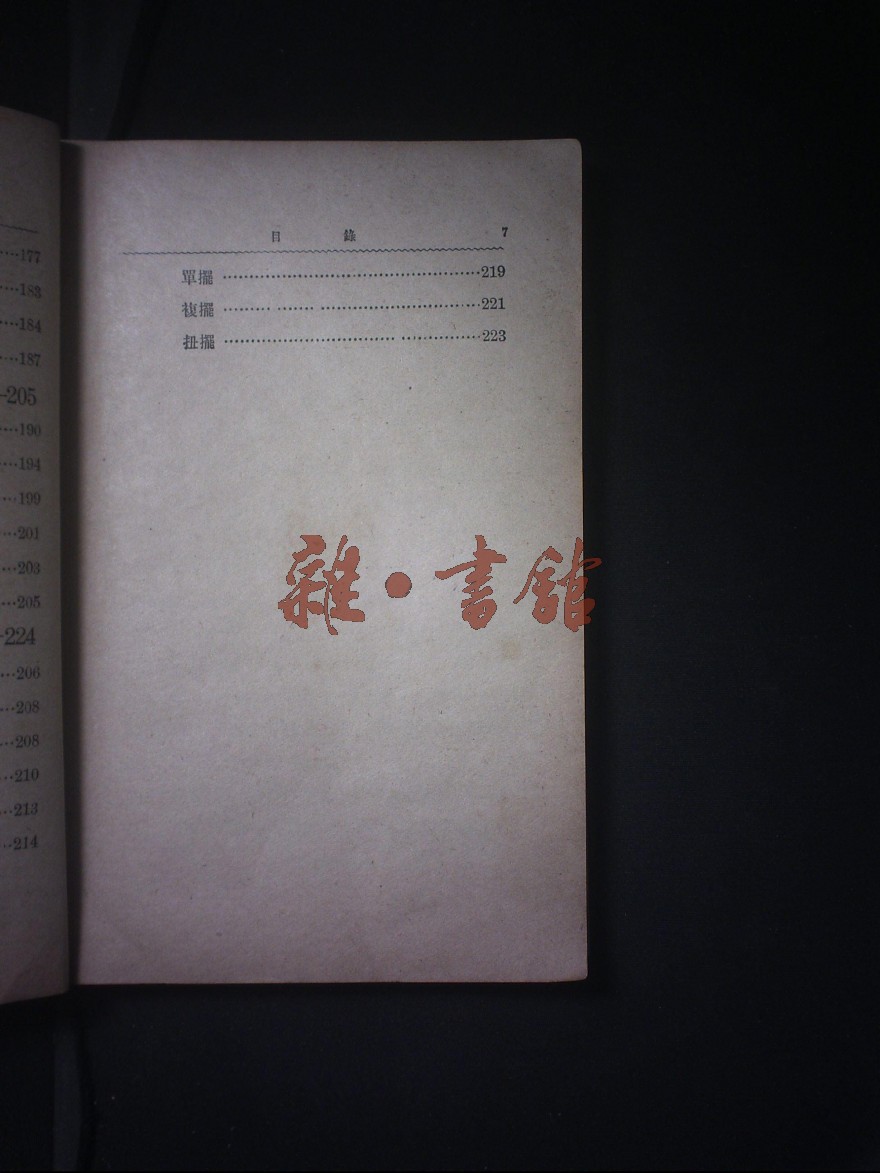 …177
…183
…184
…187
-205
…190
…194
…199
…201
…203
…205
-224
…206
…208
…208
…210
…213
…214
目 錄 7
單擺 ……………………………………219
複擺 ……………………………………221
扭擺 ……………………………………223
雜·書館